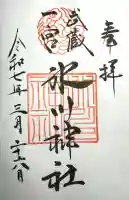 奉拝
武蔵
一宮
氷川神社
令和七年三月二十六日